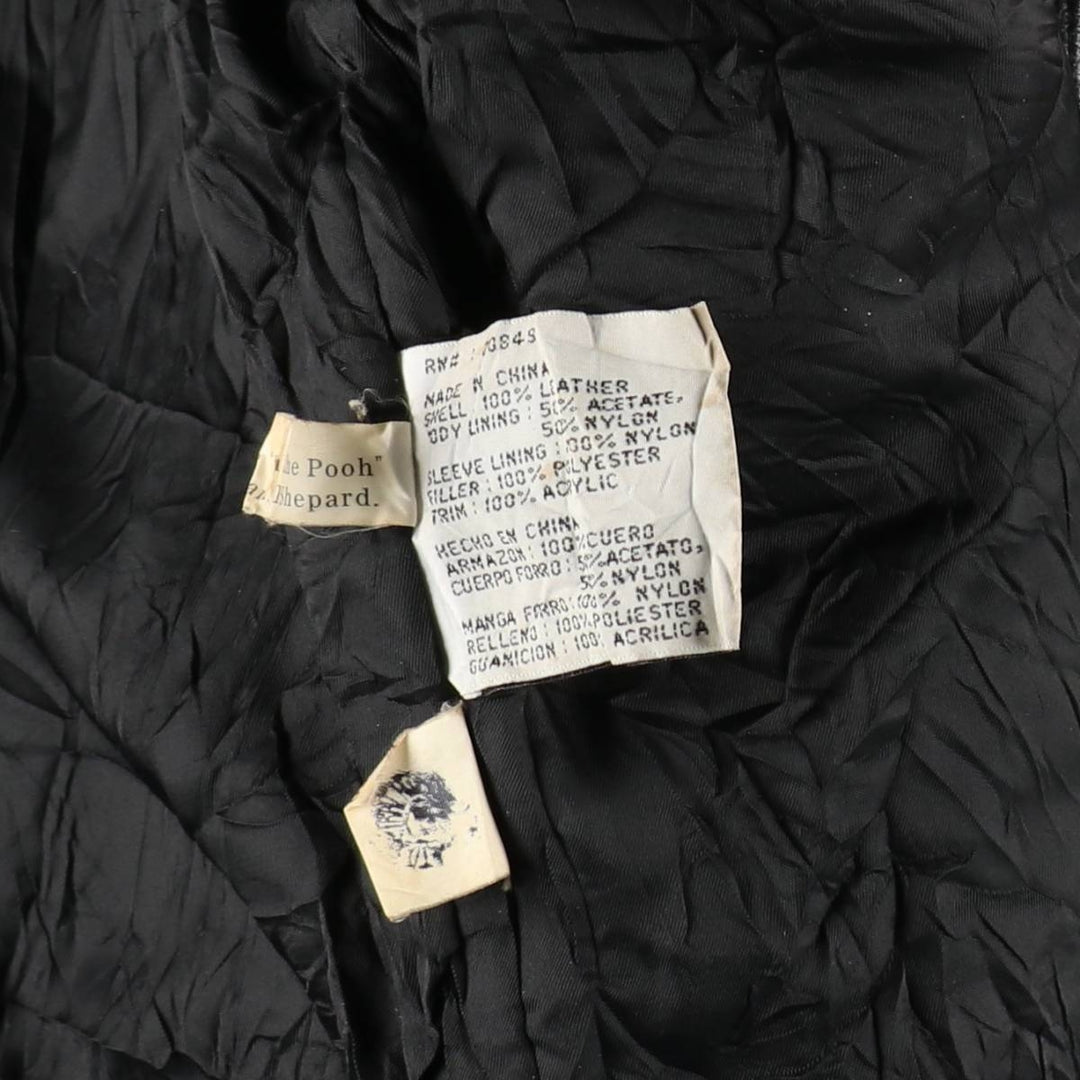 RN#
MADE IN CHINA
SHELL : 100% LEATHER
BODY LINING : 50% ACETATE,
50% NYLON
SLEEVE LINING : 100% NYLON
FILLER : 100% POLYESTER
TRIM : 100% ACRYLIC
HECHO EN CHINA
ARMAZON : 100% CUERO
CUERPO FORRO : 5% ACETATO,
5% NYLON
MANGA FORRO: 100% NYLON
RELLENO : 100% POLIESTER
GUANICION : 100% ACRILICA
the Pooh"
Shepard.